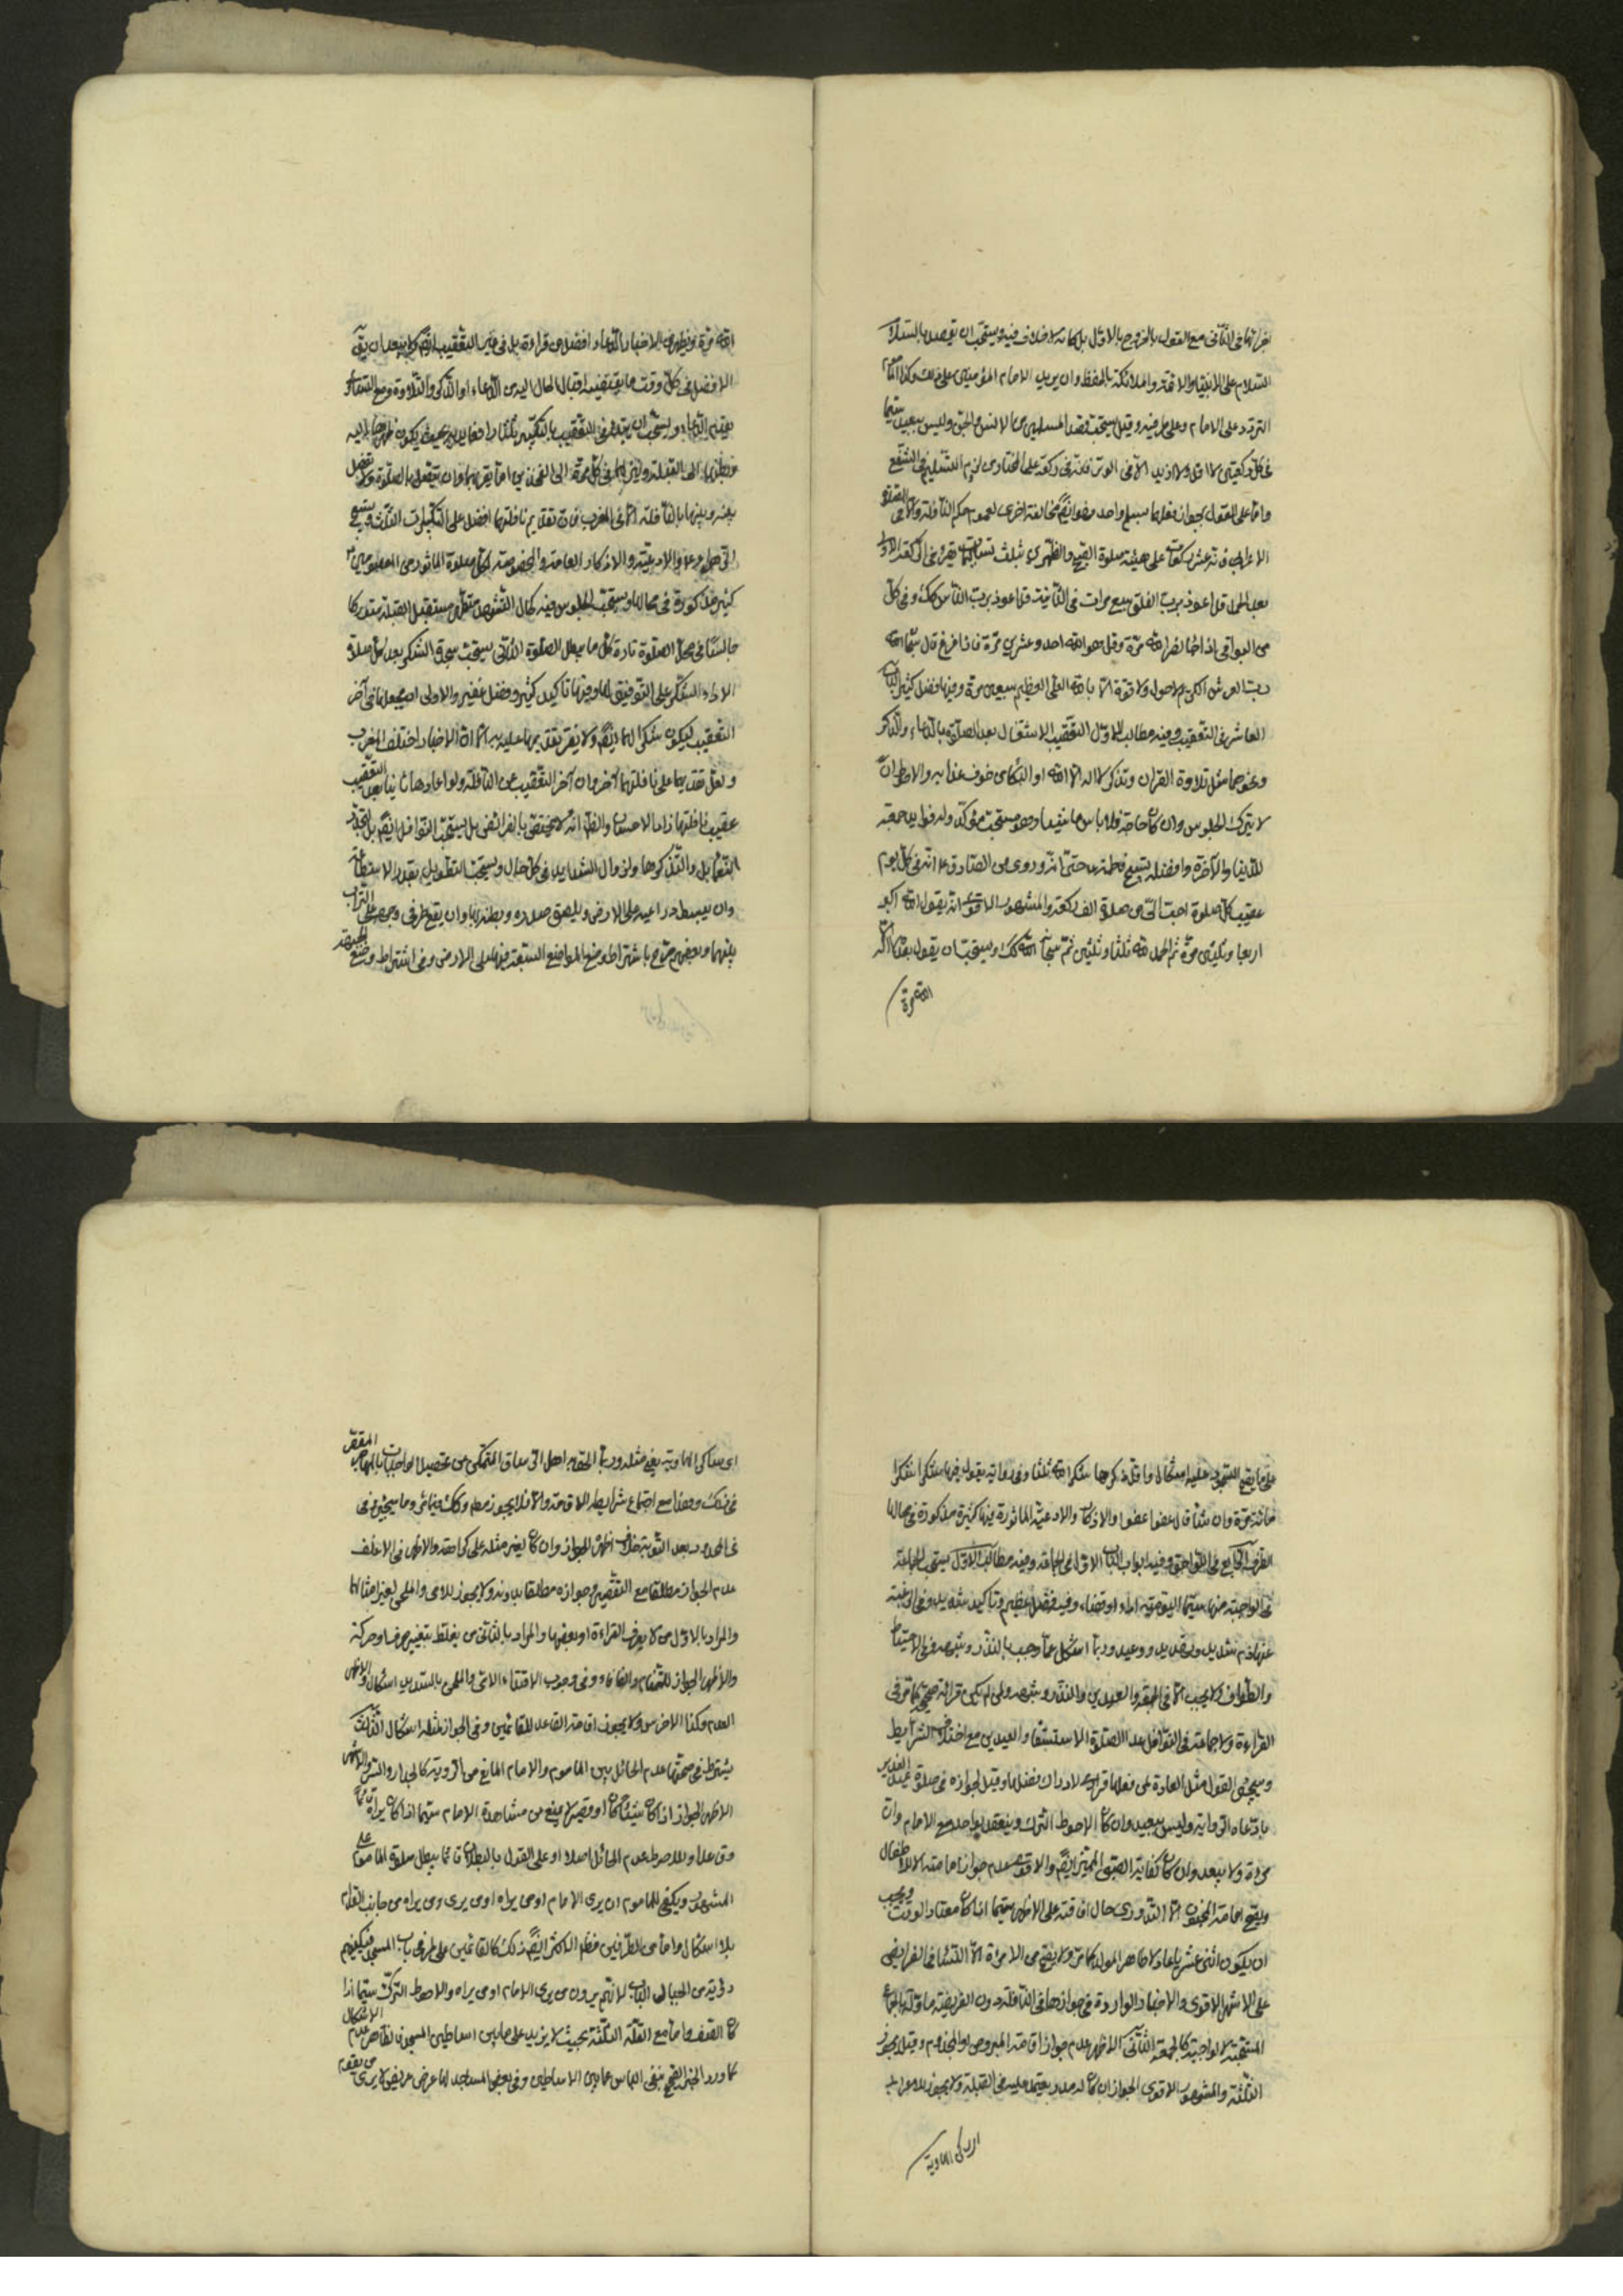 بقرائها فى الثانى مع القول بالخروج بالاول بل كانه لا خلاف فيه ويستحب ان يقصد بالسلام
السلام على الانبياء والائمة والملائكة الحفظة وان يريد الامام المؤمنين على ذلك وكذا المأموم
الرد على الامام وعلى طرفيه وقيل يستحب قصد المسلمين من الانس والجن وليس ببعيد سيما
فى كل ركعتين لا اقل ولا ازيد الا فى الوتر فانه ركعة على المختار من لزوم التسليم فى الشفع
واما على القول بجواز فعلها بتسليم واحد فهو ايضا مخالفة اخرى لعموم حكم النافلة والا فى صلوة
الاعرابى فانه عشر ركعات على هيئة صلوة الصبح والظهرين بثلث تسليمات يقرء فى الركعة الاولى
بعد الحمد قل اعوذ برب الفلق سبع مرات فى الثانية قل اعوذ برب الناس كك وفى كل
من البواقى اذا جاء نصر الله مرة وقل هو الله احد وعشرين مرة فاذا فرغ قال سبحان الله
رب العرش الكريم لا حول ولا قوة الا بالله العلى العظيم سبعين مرة وفيها فضل كثير الباب
العاشر فى التعقيب وفيه مطالب الاول التعقيب الاشتغال بعد الصلوة بالدعاء والذكر
ونحوهما مثل تلاوة القران وتذكر لا اله الا الله او البكاء من خوف عذابه والاحوط ان
لا يترك الجلوس وان كان حاجة فلا باس ماشيا وهو مستحب مؤكد وله فوائد جمة
للدنيا والآخرة وافضله تسبيح فاطمة حتى انه روى عن الصادق ع انه فى كل يوم
عقيب كل صلوة احب الى من صلوة الف ركعة والمشهور الاقوى انه يقول الله اكبر
اربعا وثلثين مرة ثم الحمد لله ثلثا وثلثين ثم سبحان الله كك ويستحب ان يقول بعد لا اله
الا الله مرة
الا الله مرة ويظهر من الاخبار ان الدعاء افضل من قراءة بل فى غير التعقيب ايضا ولا يبعد ان يق
الافضل فى كل وقت ما يقتضيه اقبال الحال اليه من الدعاء او الذكر والتلاوة ومع التساوى
يقدم الدعاء ويستحب ان يبتدء فى التعقيب بالتكبير ثلثا رافعا يديه بحيث يكون
بطنهما الى القبلة ولينزلهما فى كل مرة الى الفخذين او قريبهما وان يتصل بالصلوة ولا يفصل
بينه وبينها بالنافلة الا فى المغرب فان تقديم نافلتها افضل على التكبيرات الثلث وتسبيح
الزهراء والادعية والاذكار العامة والمخصوصة لكل صلوة الماثورة من المعصومين ع
كثير مذكورة فى محالها ويستحب الجلوس فيه كحال التشهد متطهرا مستقبل القبلة متوركا
جالسا فى محل الصلوة تاركا كل ما يبطل الصلوة الثانى يستحب سجدة الشكر بعد كل صلوة
الاداء الشكر على التوفيق لها وفيها تاكيد كثير وفضل غفير والاولى ان يجعلها فى آخر
التعقيب ليكون شكرا لهما ايضا ولا يضر تقديمها عليه الا ان الاخبار اختلف المغرب
ولعل تقديمها على نافلتها آخر وان آخر التعقيب عن النافلة ولو اعادها ثانيا بعد التعقيب
عقيب نافلتها زاد الاحسان والظ انه لا يختص بالفرائض بل يستحب النوافل ايضا بل لتجدد
النعماء بل والتذكر لها ولزوال الشدايد فى كل حال ويستحب التطويل بقدر الاستطاعة
وان يبسط ذراعيه على الارض ويلصق صدره وبطنه بها وان يضع طرفى وجهه على التراب
بينهما وبعضهم صرح باشتراط وضع المواضع السبعة فيها على الارض وفى اشتراط وضع الجبهة
على ما يصح السجود عليه اشكال واقل ذكرها شكرا لله ثلثا وفى رواية يقول فيها شكرا شكرا
مائة مرة وان شاء قال عفوا عفوا والاذكار والادعية الماثورة فيها كثيرة مذكورة فى محالها
الطرف الرابع فى اللواحق وفيه ابواب الباب الاول فى الجماعة وفيه مطالب الاول يستحب الجماعة
فى الواجبة منها سيما اليومية اداء او قضاء وفيه فضل عظيم وتاكيد شديد وفى الرغبة
عنها ذم شديد وتهديد ووعيد وربما استشكل عما وجب بالنذر وشبهه وفى الاحتياط
والطواف ولا يجب الا فى الجمعة والعيدين والنذر وشبهه ولمن لم يكن قرائته صحيحة كما مر فى
القراءة ولا جماعة فى النوافل عدا الصلوة الاستسقاء والعيدين مع اختلال الشرايط
وسيجئ القول مثل العادة لمن فعلها فرادى لادراك فضلها وقيل بجوازه فى صلوة عيد الغدير
بادعاء الرواية وليس ببعيد وان كان الاحوط الترك وينعقد بواحد مع الامام وان
مرءة ولا يبعد وان كان كفاية الصبى المميز ايضا والاقوى عدم جواز امامته الا للاطفال
ويصح امامة المجنون الا الادوارى حال افاقته على الاظهر سيما اذا كان معتاد الوقت ويجب
ان يكون اثنى عشريا عادلا طاهر المولد كما مر ولا يصح من الامرءة الا النساء فى الفرايض
على الاشهر الاقوى والاخبار الواردة فى جوازها فى النافلة دون الفريضة ماولة بالجماعة
المستحبة لا الواجبة كالجمعة الثانى الاظهر عدم جواز امامة المبروص والمجذوم وقيل يجوز
الثلثة والمشهور الاقوى الجواز ان كان له مسدد يعتمد عليه فى القبلة ولا يجوز للاعرابى
اى ساكن البادية
اى ساكن البادية بغير مثله وربما الحق به اهل الرستاق المتمكن من تحصيل الواجبات بالمهاجرة المقصر
فى ذلك وهذا مع اجتماع شرايط الامامة والا فلا يجوز مط وكك فيما مر وما سيجئ وفى
المحدود بعد التوبة خلاف اظهره الجواز وان كان لغير مثله على كراهة والاظهر فى الاغلف
عدم الجواز مطلقا مع التقصير وجوازه مطلقا بدونه ولا يجوز للامى والملحن لغير امثالها
والمراد بالاول من لا يعرف القراءة او بعضها والمراد بالثانى من يغلط بتغيير حرف او حركة
والاظهر الجواز للتمتام والفافاء وفى وجوب الاقتداء الامى والملحن بالسديد اشكال والاظهر
العدم وكذا الاخرس ولا يجوز امامة القاعد للقائمين وفى الجواز لمثله اشكال الثالث
يشترط فى صحتها عدم الحائل بين الماموم والامام المانع من الرؤية كالجدار والستر والاشهر
الاظهر الجواز اذا كان شباك او قصير لا يمنع من مشاهدة الامام سيما اذا كان يراه قائما
وقاعدا والاحوط عدم الحائل اصلا وعلى القول بالبطلان فانما يبطل صلوة الماموم على
المشهور ويكفى للماموم ان يرى الامام او من يراه او من يرى من يراه من جانب القدام
بلا اشكال واما من الطرفين فظاهر الاكثر ايضا ذلك كالقائمين على طرفى باب المسجد فيكفيهم
رؤية من الحيال الباب لانهم يرون من يرى الامام او من يراه والاحوط الترك سيما اذا
كان الصف واما مع القلة الثلثة بحيث لا يزيد على ما بين اساطين المسجد فالظاهر عدم الاشكال
كما ورد الخبر الصحيح بنفى الباس عما بين الاساطين وفى بعض المساجد لها عرض عريض لا يرى من يقوم